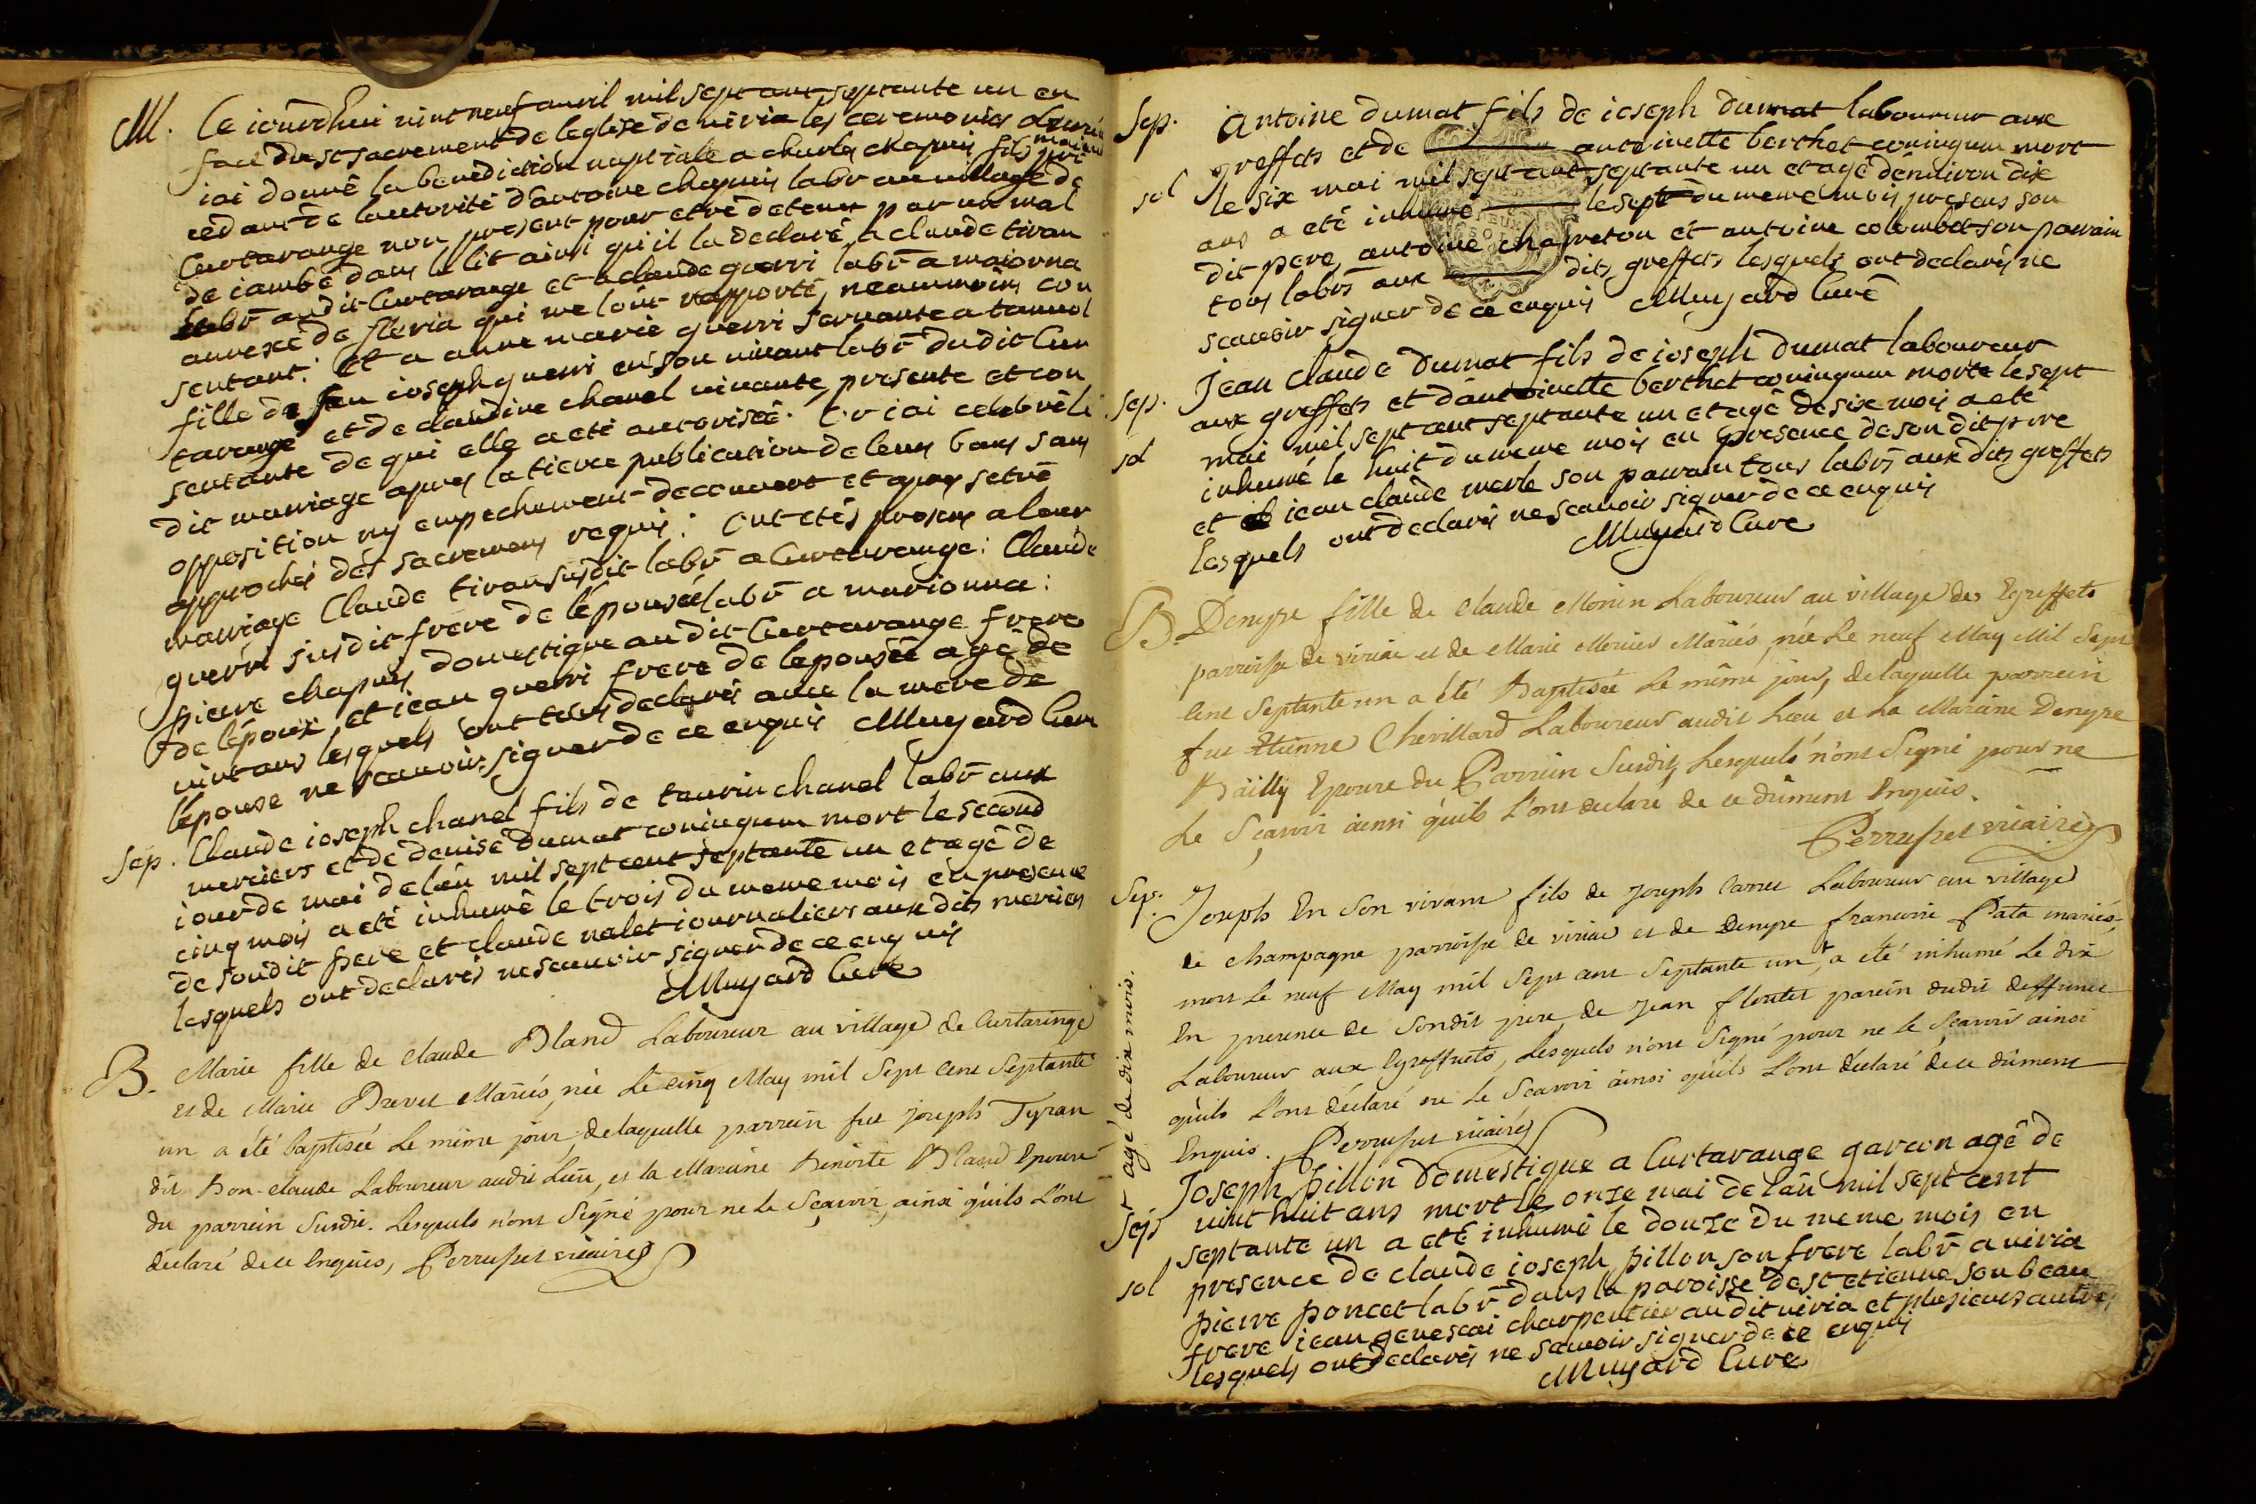 M. Ce iourdhui vint neuf auvril mil sept cent septante un en
face du st sacrement de leglise de viria les ceremonies
iai donné la benediction nuptiale a charles chapuis fils
cedant de lautorité dantoine chapuis labr au village de
Curtarange non present pour etre detenu par un mal
de iambe dans le lit ainsi quil la declaré a claude tiran
labr audit Curtarange et a claude guerri labr a maiorna
annexe de fleria qui me lont rapporté, neanmoins con
sentant: et a anne marie guerri servante a
fille de feu ioseph guerri en son vivant labr dudit Cur
tarange et de claudine chanel vivante, presente et con
sentante de qui elle a eté autorisée. Or iai celebré le
dit mariage apres la tierce publication de leurs bans sans
opposition ny empechement decouvert et apres setre
approchés des sacremens requis. Ont etés presens a leur
mariage Claude tiran susdit labr a Curtarange: Claude
guerri susdit frere de lépousée labr a marionna:
pierre chapuis domestique audit Curtarange frere
de lépoux, et iean guerri frere de lepousée agé de
vint ans lesquels ont tous declarés avec la mere de
lépouse ne scauoir signer de ce enquis Muyard Cure
Sep. Claude ioseph chanel fils de taurin chanel labr aux
merciers et de denise dumat coniugum mort le second
iour de mai de lan mil sept cent septante un et agé de
cinq mois a eté inhumé le trois du meme mois en presence
de sondit pere et claude valet iournaliers aux dits merciers
lesquels ont declarés ne scauoir signer de ce enquis
Muyard Cure
B. Marie fille de Claude Bland Laboureur au village de Curtaringe
et de Marie Brevet Mariés, née Le cinq May mil Sept Cent Septante
un a été baptisée Le même jour, de laquelle parrein fut joseph Tyran
dit Bon-claude Laboureur audit Lieu, et la Mareine Benoite Bland Epouse
du parrein Susdit. Lesquels n'ont Signé pour ne Le Sçavoir, ainsi quils L'ont
declaré de ce Enquis, Perruset vicaire
Sep. Antoine dumat fils de ioseph dumat laboureur aux
greffets et de antoinette berthet coniugum mort
sol le six mai mil sept cent septante un et agé dénviron dix
ans a eté inhumé le sept du meme mois presens son
dit pere, antoine charreton et antoine colombet son parrain
tous labrs aux dits greffets lesquels ont declarés ne
scauoir signer de ce enquis Muyard Curé
Sep. Jean Claude dumat fils de ioseph dumat laboureur
aux greffets et dantoinette berthet coniugum morte le sept
sol mai mil sept cent septante un et agé de six mois a eté
inhumé le huit du meme mois en presence de son dit pere
et iean claude merle son parrain tous labrs aux dits greffets
lesquels ont declarés ne scauoir signer de ce enquis
Muyard Cure
B. Denyse fille de Claude Monin Laboureur au village des Egreffets
parroisse de viriac et de Marie Mercier Mariés, née Le neuf May Mil Sept
Cent Septante un a été Baptisée Le même jour, de laquelle parrein
fut Etienne Chevillard Laboureur audit Lieu et La Mareine Denyse
Bailly Epouse du Parrein Susdit, Lesquels n'ont Signé pour ne
Le Sçavoir ainsi quils L'ont declaré de ce dûment Enquis.
Perruset vicaire
Sep. Joseph En Son vivant fils de Joseph Carret Laboureur au village
de Champagne parroisse de viriac et de Denyse francoise Pata mariés,
mort Le neuf May mil Sept cent Septante un, a été inhumé Le dix
En presence de Sondit pere, de Jean floutet parein dudit deffunct
Laboureur aux Egreffets, Lesquels n'ont Signé pour ne Le Sçavoir ainsi
quils L'ont déclaré ne Le Sçavoir ainsi quils L'ont déclaré de ce dûment
Enquis. Perruset vicaire
et agé de dix mois.
Joseph pillon domestique a Curtarange garcon agé de
sep vint huit ans mort le onze mai de lan mil sept cent
septante un a eté inhumé le douze du meme mois en
sol presence de claude ioseph pillon son frere labr a viria
pierre poncet labr dans la paroisse de st etienne son beau
frere iean genescai charpentier audit viria et plusieurs autres
lesquels ont declarés ne sauoir signer de ce enquis
Muyard Cure